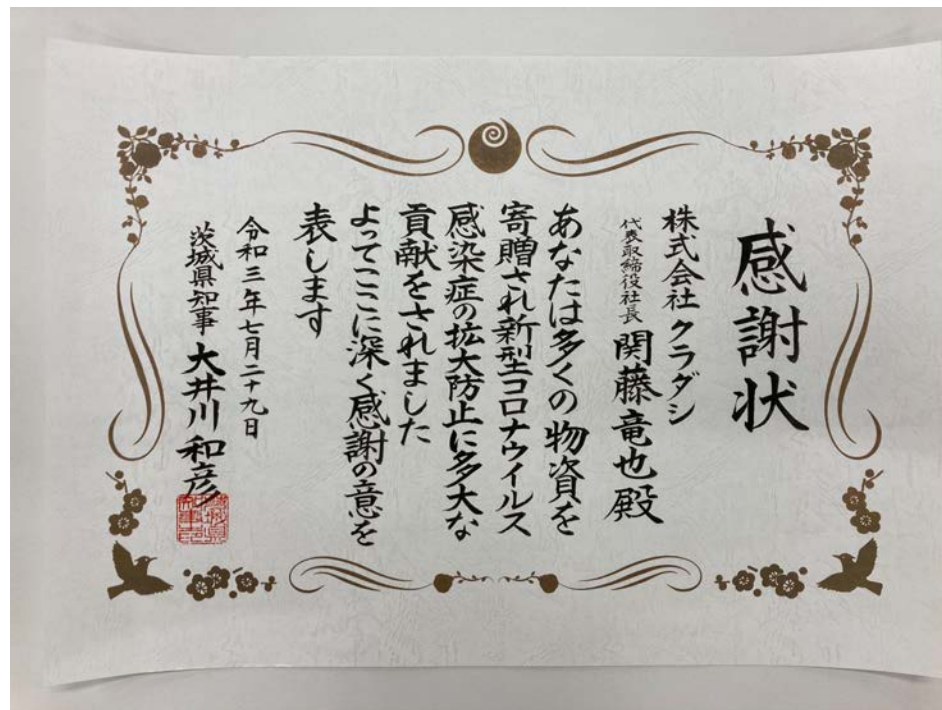 感謝状
株式会社クラダシ
代表取締役社長 関藤竜也殿
あなたは多くの物資を
寄贈され新型コロナウイルス
感染症の拡大防止に多大な
貢献をされました
よってここに深く感謝の意を
表します
令和三年七月二十九日
茨城県知事 大井川和彦